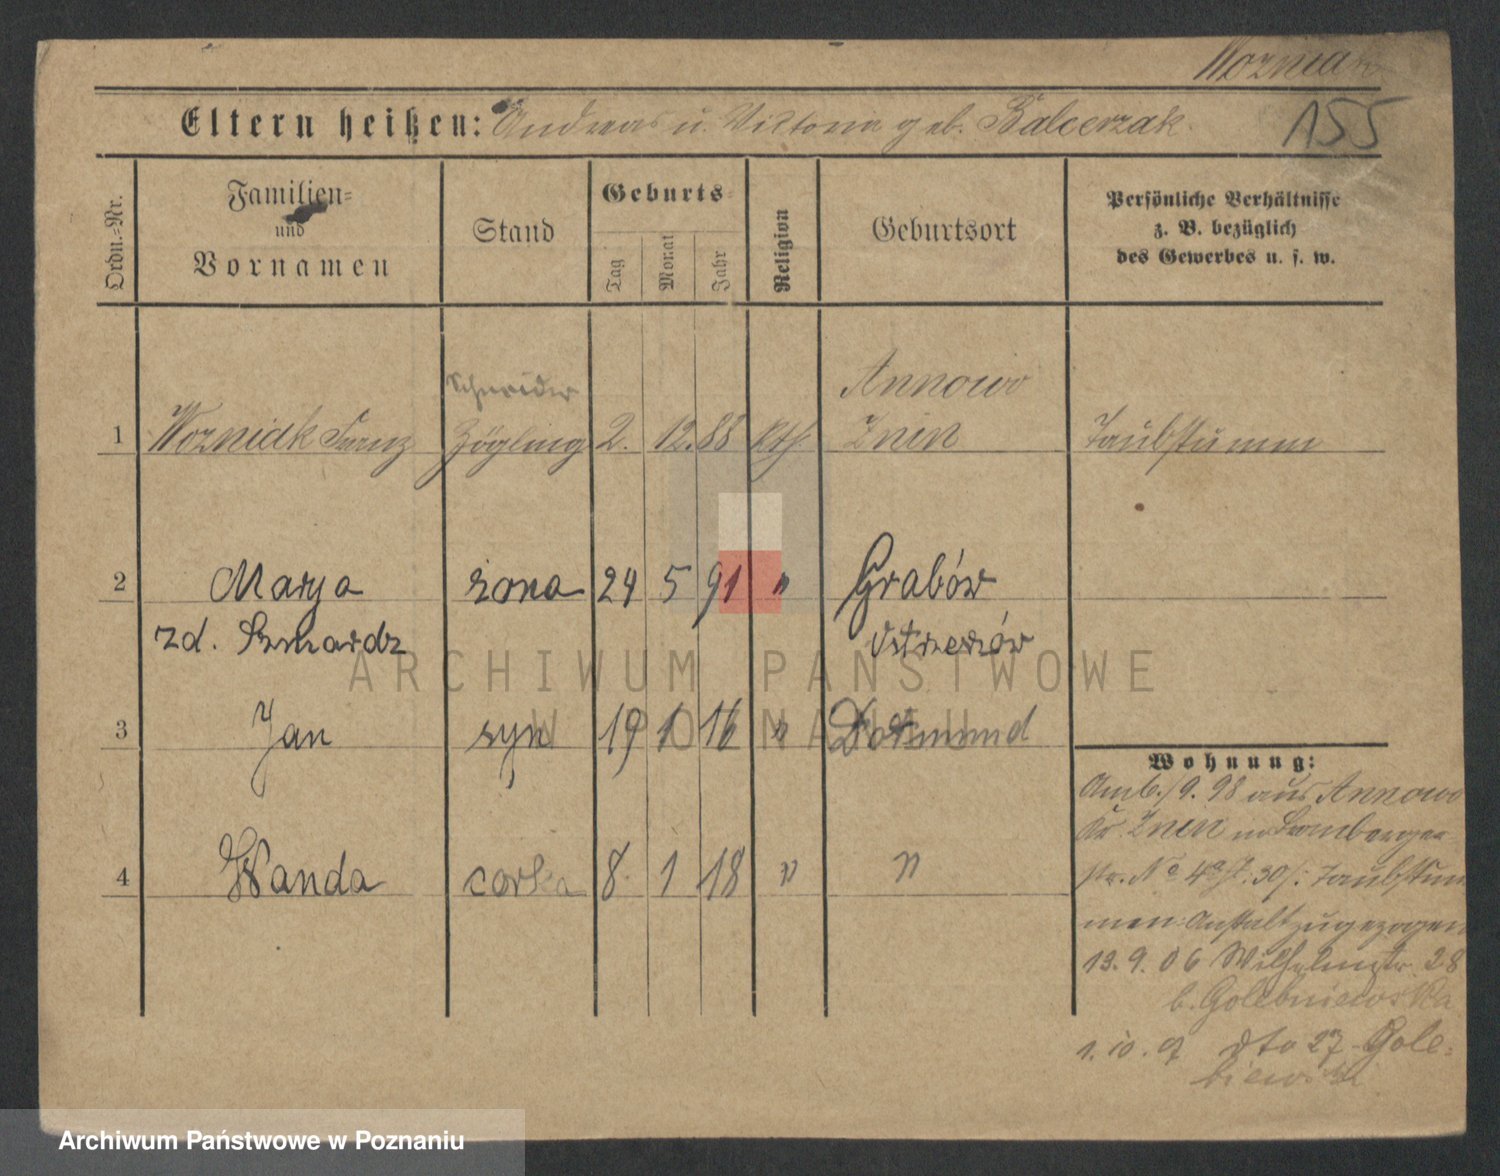 Wozniak
155
Eltern heißen: Andreas u. Victoria geb. Balcerzak.
Ordn.-Nr.
Familien- und Vornamen
Stand
Geburts-
Tag
Monat
Jahr
Religion
Geburtsort
Persönliche Verhältnisse
z. B. bezüglich
des Gewerbes u. s. w.
Schneider
Annowo
1 Wozniak Franz Zögling 2. 12. 88 kth. Znin Taubstumm
2 Marya żona 24 5 91 " Grabów
zd. Szmardz Ostrzeszów
3 Jan syn 19 1 16 " Dortmund
4 Wanda corka 8. 1 18 " "
Wohnung:
9. 98 aus Annowo
Kr. Znin in Bromberger
str. No 4a Taubstum
men Anstalt zugezogen
13. 9. 06 Wilhelmstr. 28
b. Golebniewska
1. 10. 07 dto 27 Gole-
biewski
ARCHIWUM PAŃSTWOWE
W POZNANIU
Archiwum Państwowe w Poznaniu